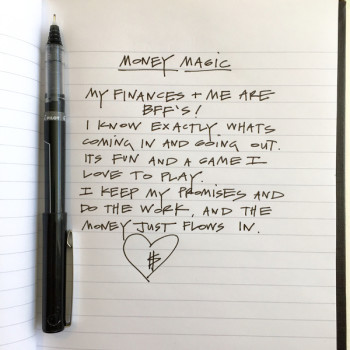 MONEY MAGIC
MY FINANCES + ME ARE
BFF'S!
I KNOW EXACTLY WHATS
COMING IN AND GOING OUT.
ITS FUN AND A GAME I
LOVE TO PLAY.
I KEEP MY PROMISES AND
DO THE WORK, AND THE
MONEY JUST FLOWS IN.
$
PILOT